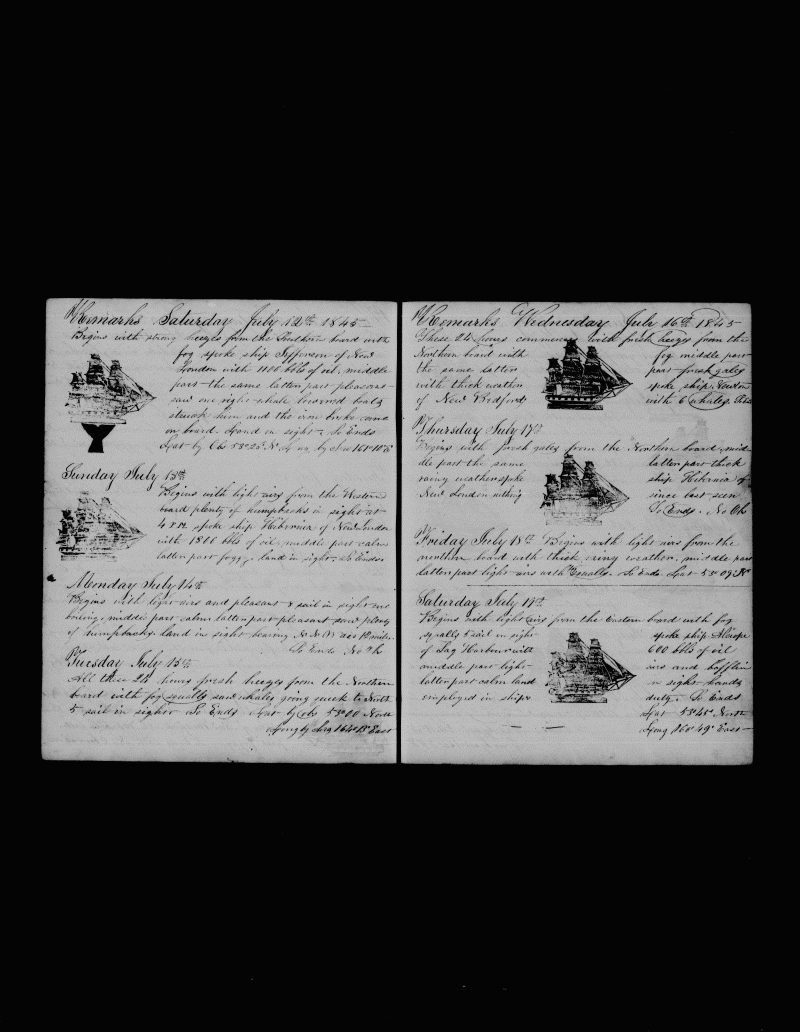 Remarks Saturday July 12th 1845
Begins with strong breezes from the Southern board with
fog spoke ship Jefferson of New
London with 1100 bbls of oil, middle
part the same latten part pleasant
saw one right whale lowered boats
struck him and the iron broke came
on board. Land in sight So Ends
Lat by Obs 53°25' N.
Sunday July 13th
Begins with light airs from the Western
board plenty of humpbacks in sight at
4 P.M. spoke ship Hibernia of New London
with 1800 bbls of oil middle part calm
latten part foggy. land in sight. So Ends
Monday July 14th
Begins with light airs and pleasant 8 sail in sight
middle part calm latten part pleasant saw plenty
of humpbacks land in sight bearing
So Ends No Ob
Tuesday July 15th
All these 24 hours fresh breezes from the Northern
board with fog squalls saw whales going quick to North
5 sail in sight So Ends Lat by Obs 53°00 North
Long by Lun 164°13' East
Remarks Wednesday July 16th 1845
These 24 hours commences with fresh breezes from the
Northern board with fog middle part
the same latten part fresh gales
with thick weather spoke ship
of New Bedford with 6 whales.
Thursday July 17th
Begins with fresh gales from the Northern board. mid
dle part the same latten part thick
rainy weather spoke ship Hibernia of
New London nothing since last seen
So Ends. No Ob
Friday July 18th Begins with light airs from the
northern board with thick rainy weather. middle part
latten part light airs with squalls. So Ends Lat 53°09' N
Saturday July 19th
Begins with light airs from the Eastern board with fog
squalls 8 sail in sight spoke ship
of Sag Harbour with 600 bbls of oil
middle part light airs and baffling
latten part calm land in sight hands
employed in ships duty. So Ends
Lat 53°45' North
Long 160°49' East